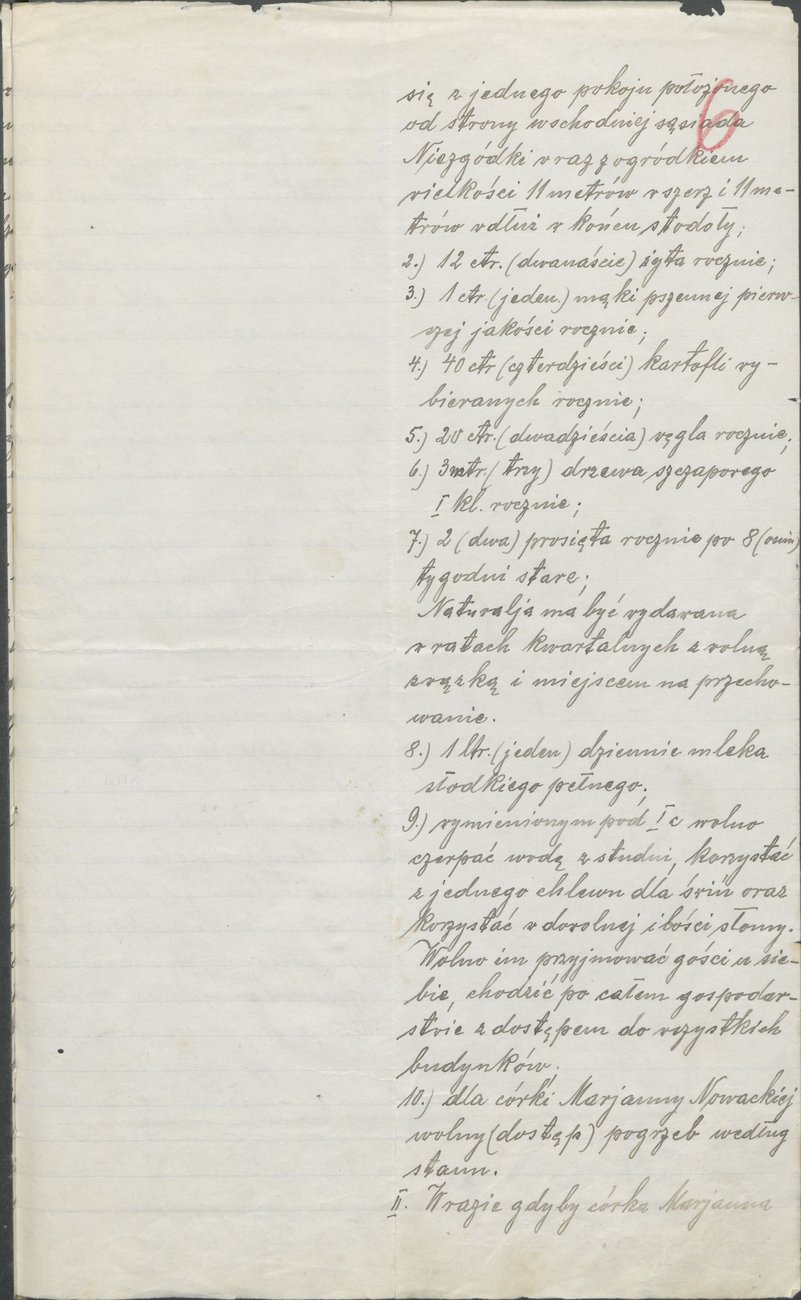 6
się z jednego pokoju położonego
od strony wschodniej sąsiada
Niezgódki wraz z ogródkiem
wielkości 11 metrów wszerz i 11 me-
trów wdłuż w końcu stodoły;
2.) 12 ctr. (dwanaście) żyta rocznie;
3.) 1 ctr. (jeden) mąki pszennej pierw-
szej jakości rocznie;
4.) 40 ctr (czterdzieści) kartofli wy-
bieranych rocznie;
5.) 20 ctr. (dwadzieścia) węgla rocznie;
6.) 3 mtr. (trzy) drzewa szczapowego
I kl. rocznie;
7.) 2 (dwa) prosięta rocznie po 8 (osim)
tygodni stare;
Naturalja ma być wydawana
w ratach kwartalnych z wolną
zwązką i miejscem na przecho-
wanie.
8.) 1 ltr. (jeden) dziennie mleka
słodkiego pełnego;
9.) wymienionym pod I c wolno
czerpać wodę z studni, korzystać
z jednego chlewu dla świń oraz
korzystać w dowolnej ilości słomy.
Wolno im przyjmować gości u sie-
bie, chodzić po całem gospodar-
stwie z dostępem do wszystkich
budynków;
10.) dla córki Marjanny Nowackiej
wolny (dostęp) pogrzeb według
stanu.
II. W razie gdyby córka Marjanna